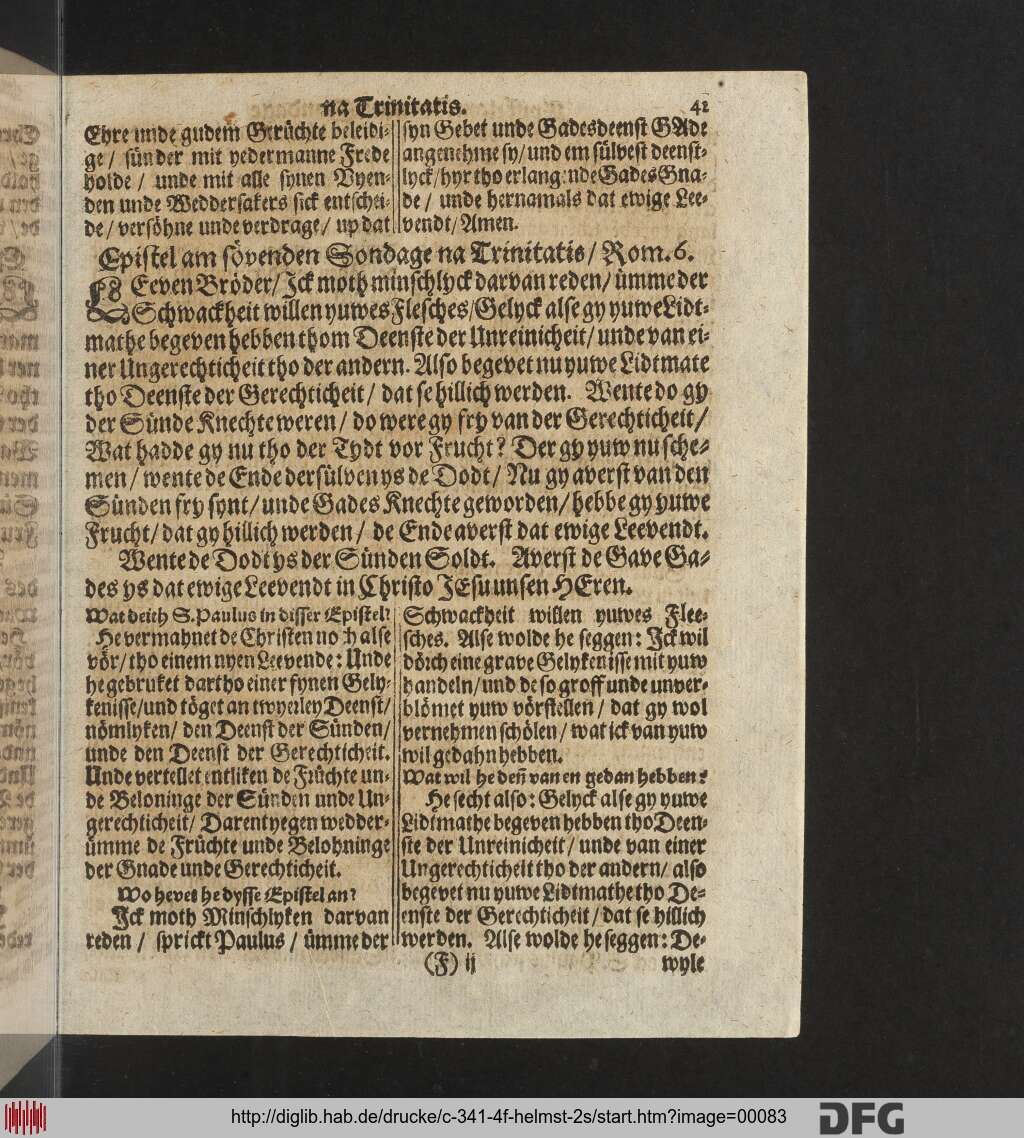 na Trinitatis. 42
Ehre unde gudem Gerüchte beleidi-
ge / sünder mit yedermanne Frede
holde / unde mit alle synen Vyen-
den unde Weddersakers sick entschei-
de / versöhne unde verdrage / up dat
syn Gebet unde Gadesdeenst GAde
angenehme sy / und em sülvest deenst-
lyck / hyr tho erlangende Gades Gna-
de / unde hernamals dat ewige Lee-
vendt / Amen.
Epistel am sövenden Sondage na Trinitatis / Rom. 6.
LEeven Bröder / Jck moth minschlyck darvan reden / ümme der
Schwackheit willen yuwes Flesches / Gelyck alse gy yuwe Lidt-
mathe begeven hebben thom Deenste der Unreinicheit / unde van ei-
ner Ungerechticheit tho der andern. Also begevet nu yuwe Lidtmate
tho Deenste der Gerechticheit / dat se hillich werden. Wente do gy
der Sünde Knechte weren / do were gy fry van der Gerechticheit /
Wat hadde gy nu tho der Tydt vor Frucht? Der gy yuw nu sche-
men / wente de Ende dersülven ys de Dodt / Nu gy averst van den
Sünden fry synt / unde Gades Knechte geworden / hebbe gy yuwe
Frucht / dat gy hillich werden / de Ende averst dat ewige Leevendt.
Wente de Dodt ys der Sünden Soldt. Averst de Gave Ga-
des ys dat ewige Leevendt in Christo JEsu unsen HEren.
Wat deith S. Paulus in disser Epistel?
He vermahnet de Christen noch alse
vör / tho einem nyen Leevende: Unde
he gebruket dartho einer fynen Gely-
kenisse / und töget an twyerley Deenst /
nömlyken / den Deenst der Sünden /
unde den Deenst der Gerechticheit.
Unde vertellet entliken de Früchte un-
de Beloninge der Sünden unde Un-
gerechticheit / Darentyegen wedder-
ümme de Früchte unde Belohninge
der Gnade unde Gerechticheit.
Wo hevet he dysse Epistel an?
Jck moth Minschlyken darvan
reden / sprickt Paulus / ümme der
Schwackheit willen yuwes Flee-
sches. Alse wolde he seggen: Jck wil
dörch eine grave Gelykenisse mit yuw
handeln / und de so groff unde unver-
blömet yuw vörstellen / dat gy wol
vernehmen schölen / wat ick van yuw
wil gedahn hebben.
Wat wil he deñ van en gedan hebben?
He secht also: Gelyck alse gy yuwe
Lidtmathe begeven hebben tho Deen-
ste der Unreinicheit / unde van einer
Ungerechticheit tho der andern / also
begevet nu yuwe Lidtmathe tho De-
enste der Gerechticheit / dat se hillich
werden. Alse wolde he seggen: De-
(F) ij wyle
http://diglib.hab.de/drucke/c-341-4f-helmst-2s/start.htm?image=00083
DFG